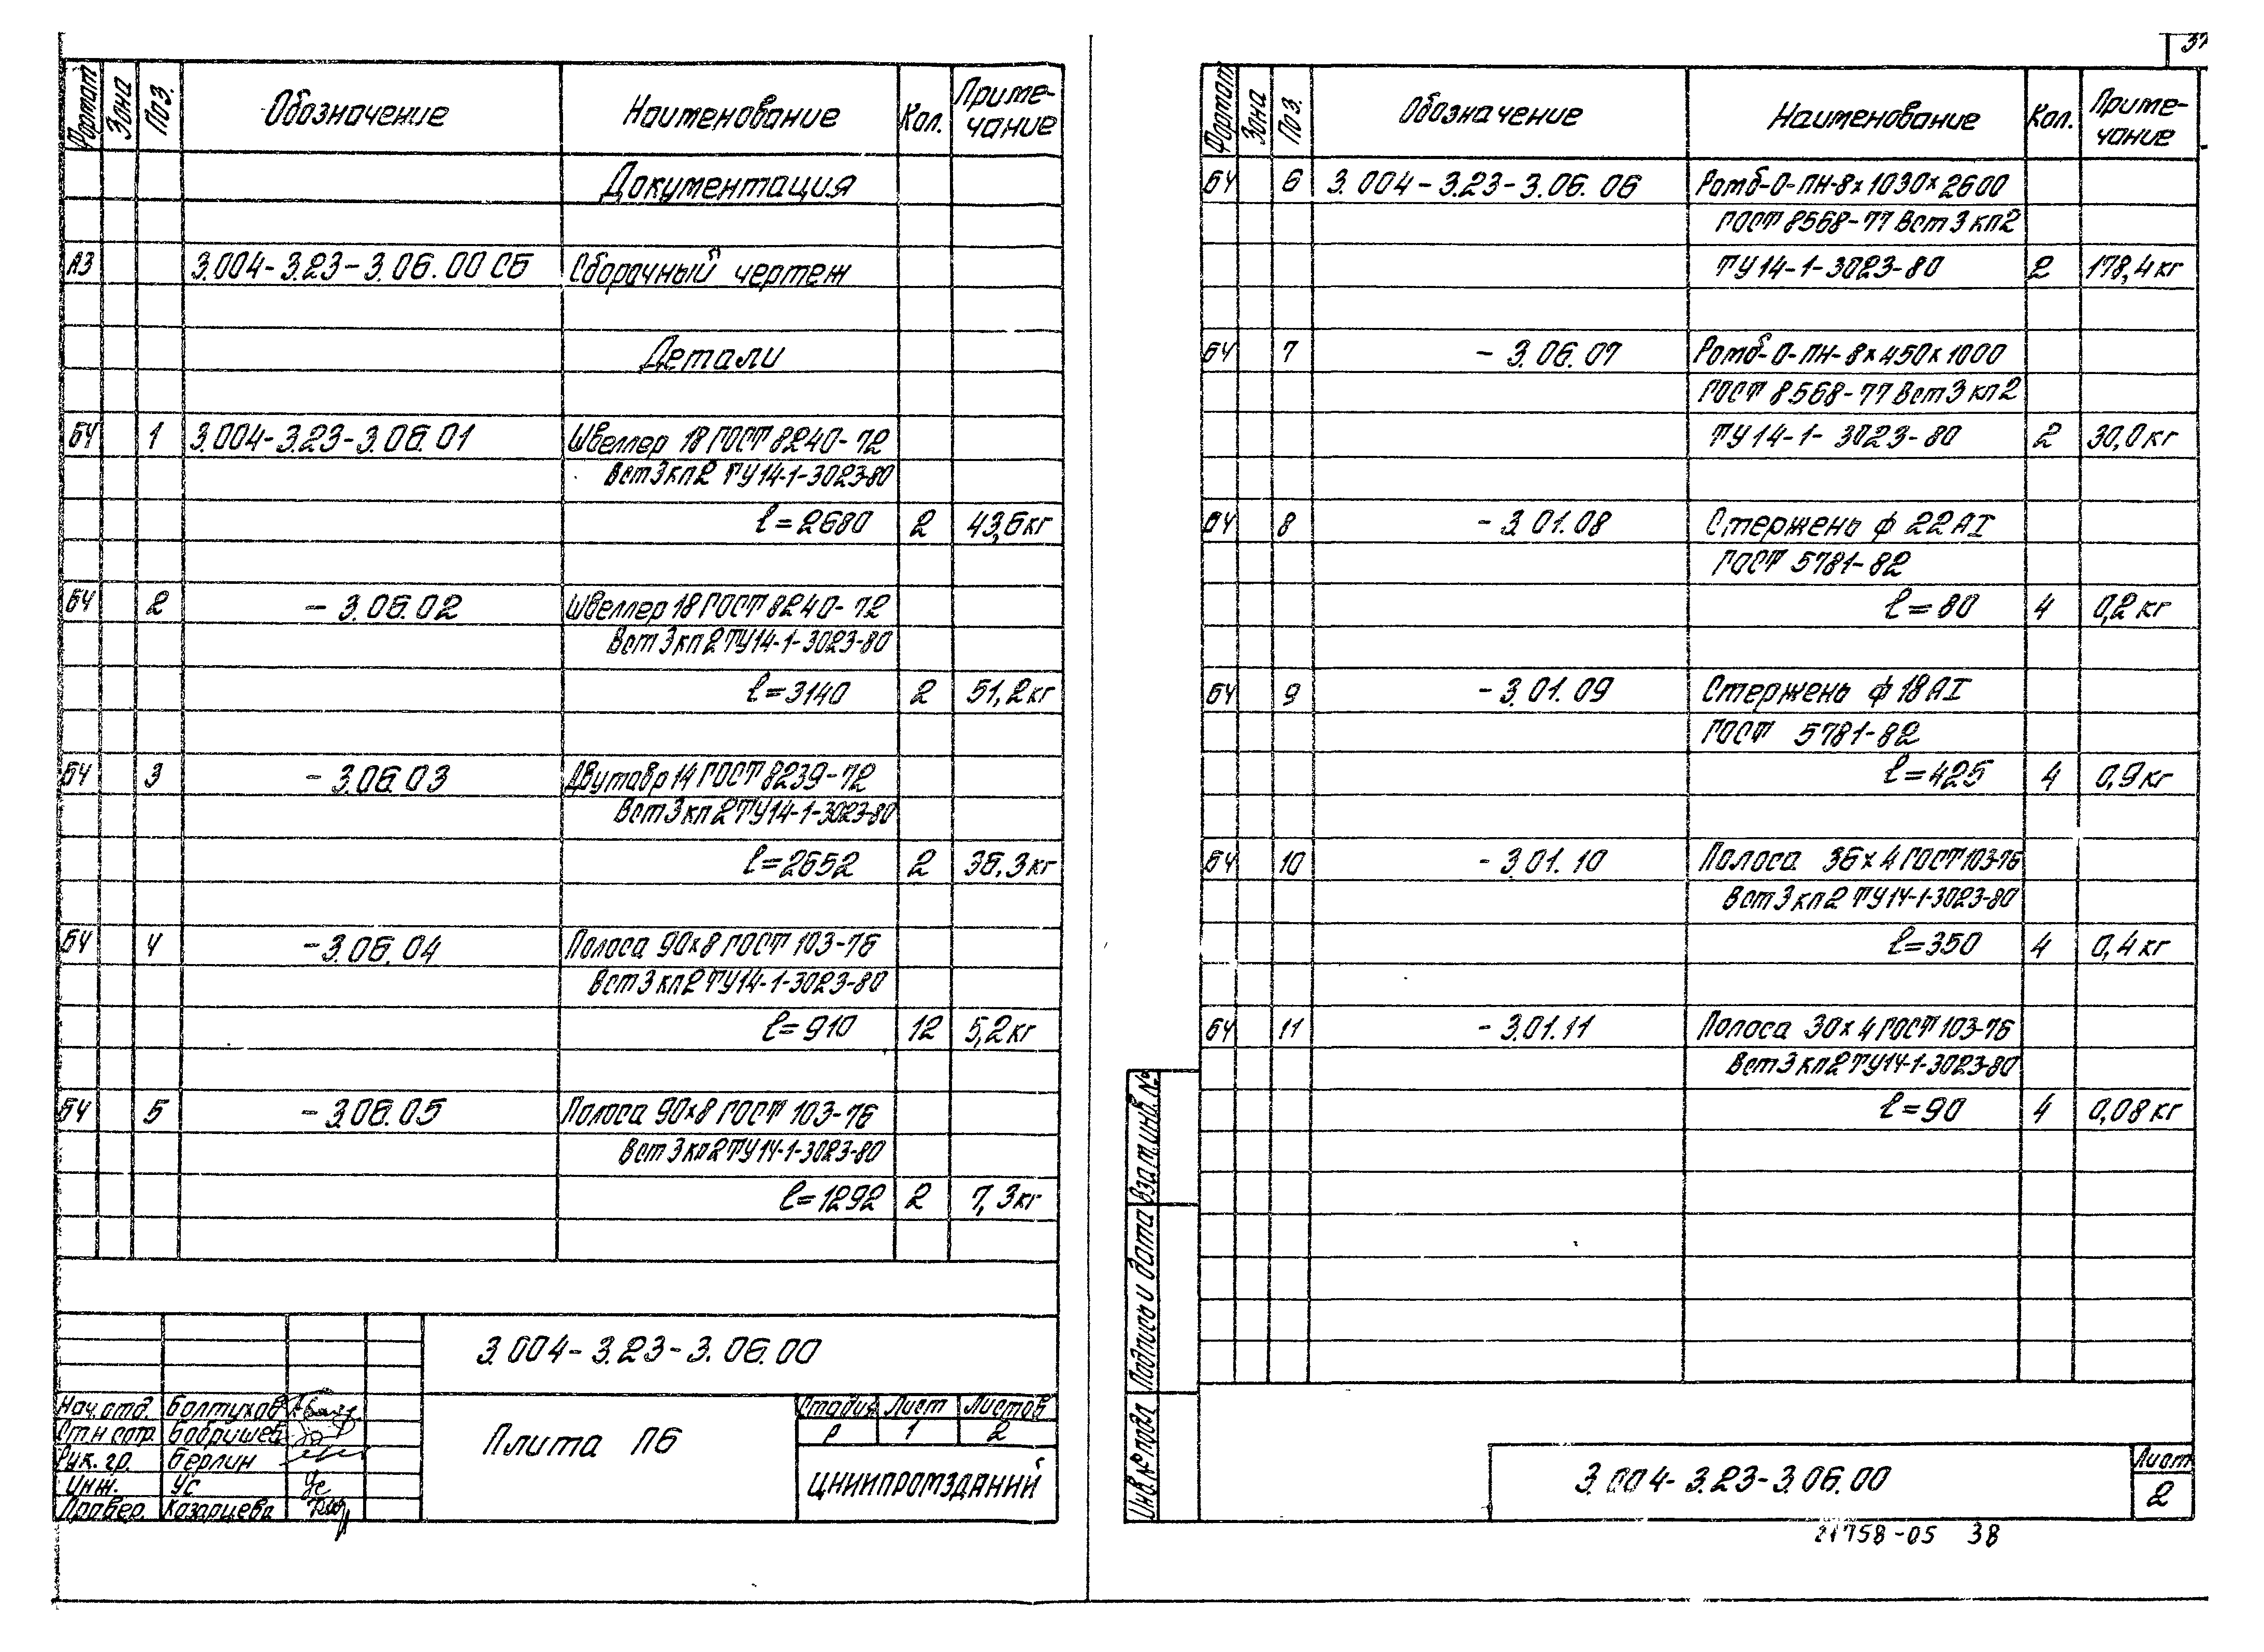 Формат Зона Поз. Обозначение Наименование Кол. Приме-
чание
Документация
А3 3.004-3.23-3.06.00 СБ Сборочный чертеж
Детали
БЧ 1 3.004-3.23-3.06.01 Швеллер 18 ГОСТ 8240-72
Вст3кп2 ТУ14-1-3023-80
ℓ=2680 2 43,6кг
БЧ 2 -3.06.02 Швеллер 18 ГОСТ 8240-72
Вст3кп2 ТУ14-1-3023-80
ℓ=3140 2 51,2кг
БЧ 3 -3.06.03 Двутавр 14 ГОСТ 8239-72
Вст3кп2 ТУ14-1-3023-80
ℓ=2652 2 36.3кг
БЧ 4 -3.06.04 Полоса 90х8 ГОСТ 103-76
Вст3кп2 ТУ14-1-3023-80
ℓ=910 12 5,2кг
БЧ 5 -3.06.05 Полоса 90х8 ГОСТ 103-76
Вст3кп2 ТУ14-1-3023-80
ℓ=1292 2 7,3кг
3.004-3.23-3.06.00
Нач.отд. Болтухов
Ст.н.сотр. Бобришев
Рук. гр. Берлин
Инж. Ус
Провер. Казарцева
Плита П6
Стадия Лист Листов
Р 1 2
ЦНИИПРОМЗДАНИЙ
37
Формат Зона Поз. Обозначение Наименование Кол. Приме-
чание
БЧ 6 3.004-3.23-3.06.06 Ромб-О-ПН-8х1030х2600
ГОСТ 8568-77 Вст3кп2
ТУ14-1-3023-80 2 178,4кг
БЧ 7 -3.06.07 Ромб-О-ПН-8х450х1000
ГОСТ 8568-77 Вст3кп2
ТУ14-1-3023-80 2 30,0кг
БЧ 8 -3.01.08 Стержень ф 22АI
ГОСТ 5781-82
ℓ=80 4 0,2кг
БЧ 9 -3.01.09 Стержень ф 18АI
ГОСТ 5781-82
ℓ=425 4 0,9кг
БЧ 10 -3.01.10 Полоса 36х4 ГОСТ 103-76
Вст3кп2 ТУ14-1-3023-80
ℓ=350 4 0,4кг
БЧ 11 -3.01.11 Полоса 30х4 ГОСТ 103-76
Вст3кп2 ТУ14-1-3023-80
ℓ=90 4 0,08кг
Взам.инв.№
Подпись и дата
Инв.№ подл
3.004-3.23-3.06.00
Лист
2
21758-05 38